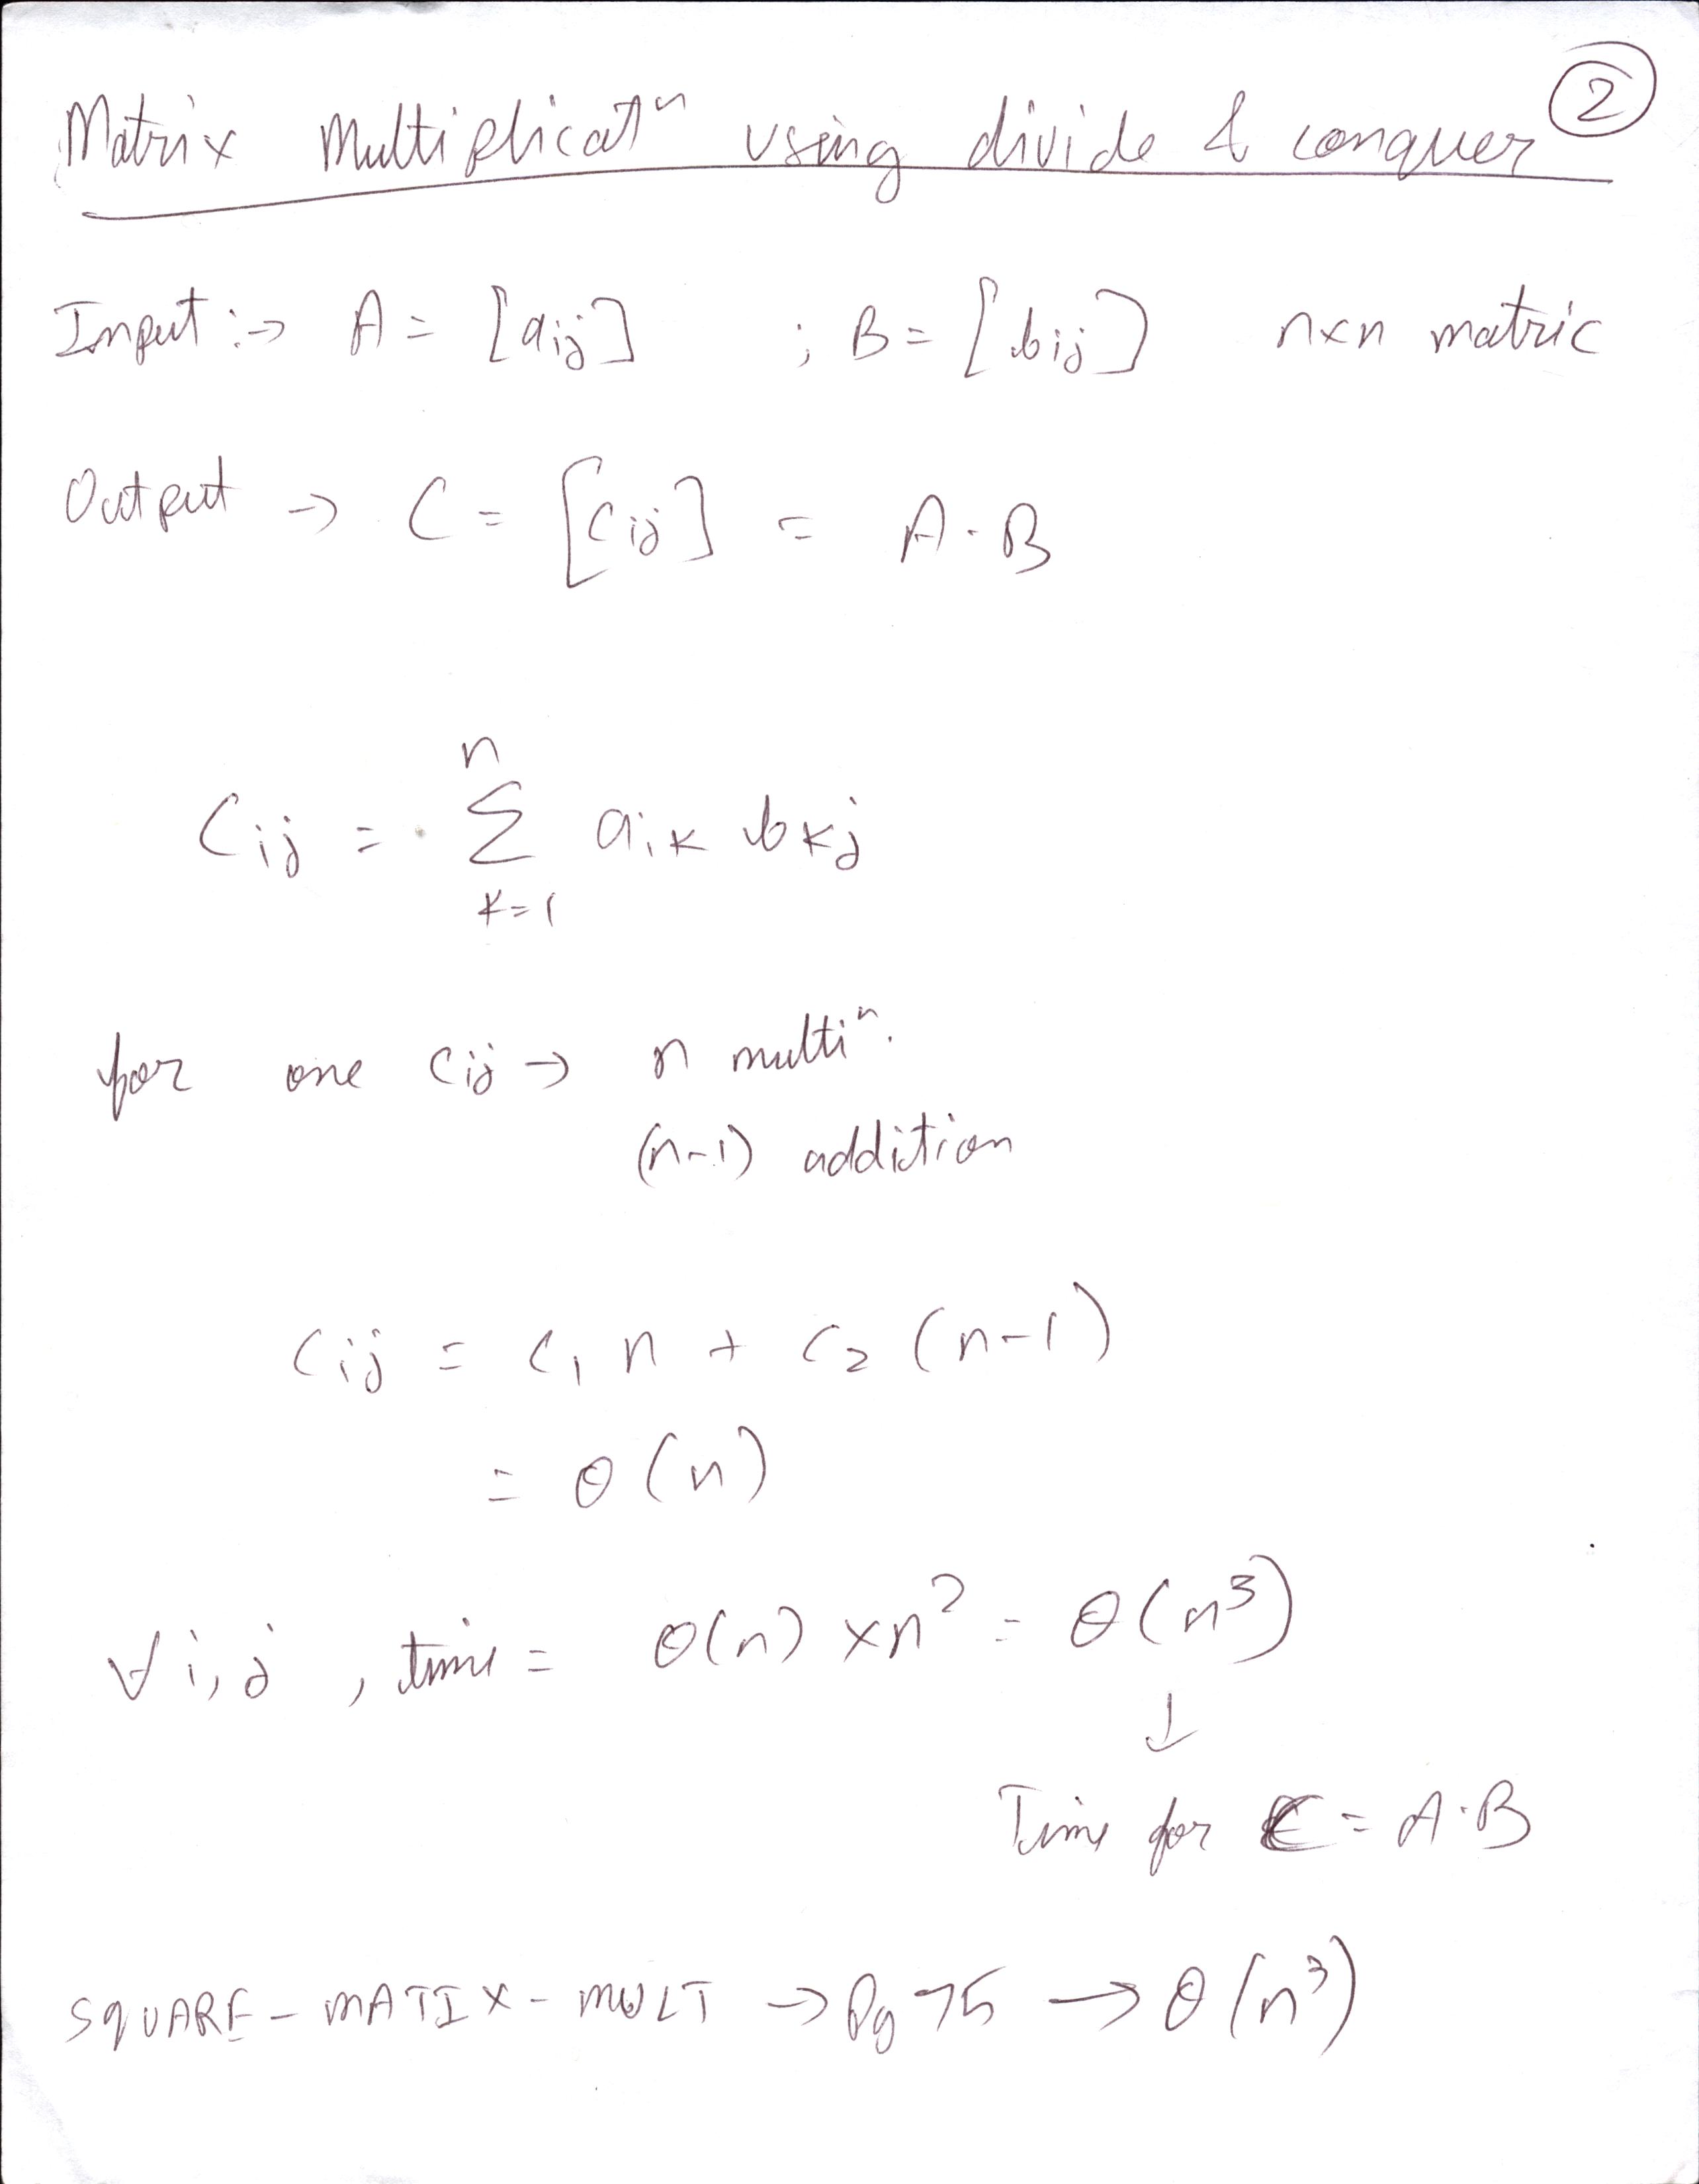 ②
Matrix Multiplicatⁿ using divide & conquer
Input :→ A = [aij] ; B = [bij] n×n matric
Output → C = [cij] = A·B
n
Cij = Σ aik bkj
k=1
for one cij → n multiⁿ.
(n-1) addition
Cij = c₁ n + c₂ (n-1)
= θ(n)
∀ i,j , time = θ(n) × n² = θ(n³)
↓
Time for C = A·B
SQUARE - MATIX - MULT → Pg 75 → θ(n³)